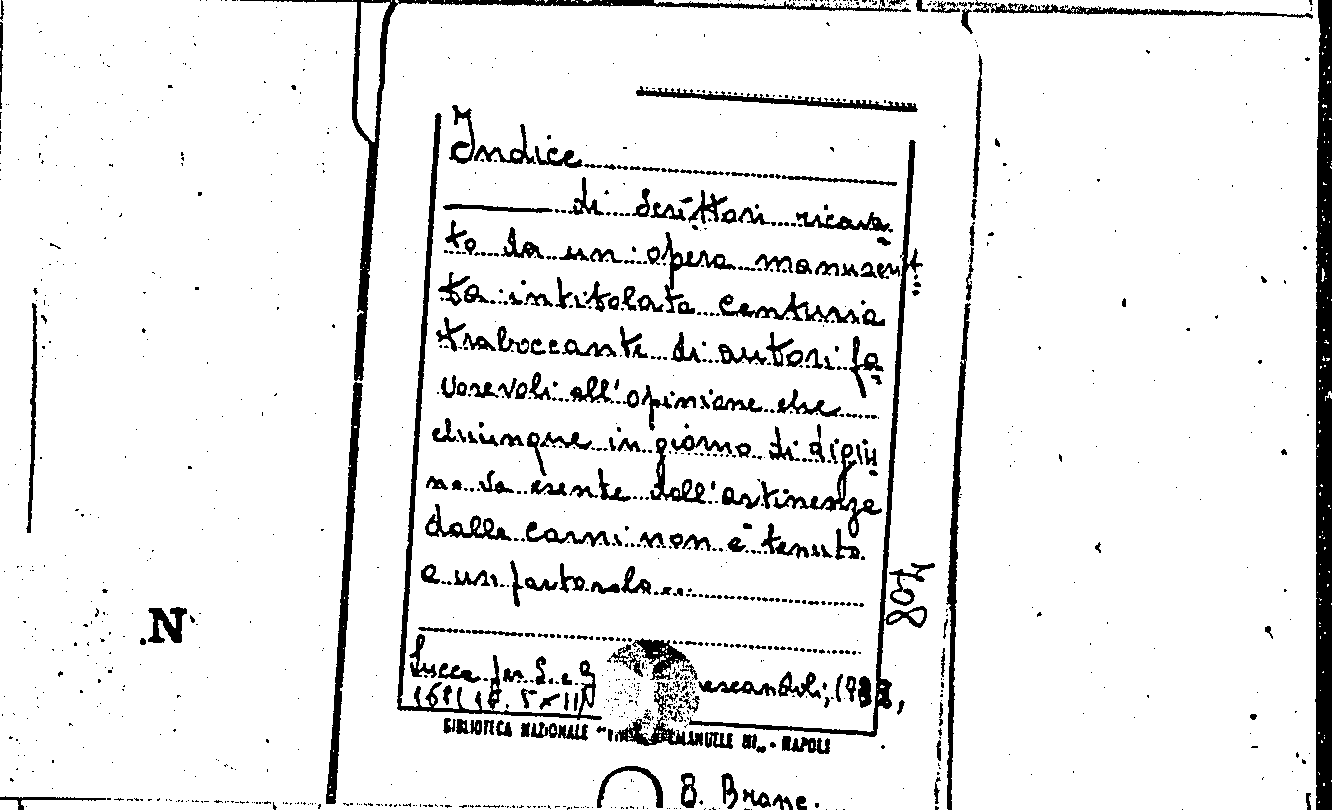 Indice
di Scrittori ricava
to da un opera manuscrit
ta intitolata Centuria
traboccante di autori fa
vorevoli all'opinione che
chiunque in giorno di digiu
no va esente dall'astinenza
dalle carni non è tenuto
a un sol
Lucca per S. e G
BIBLIOTECA NAZIONALE " EMANUELE III„ - NAPOLI
B. Branc.
N